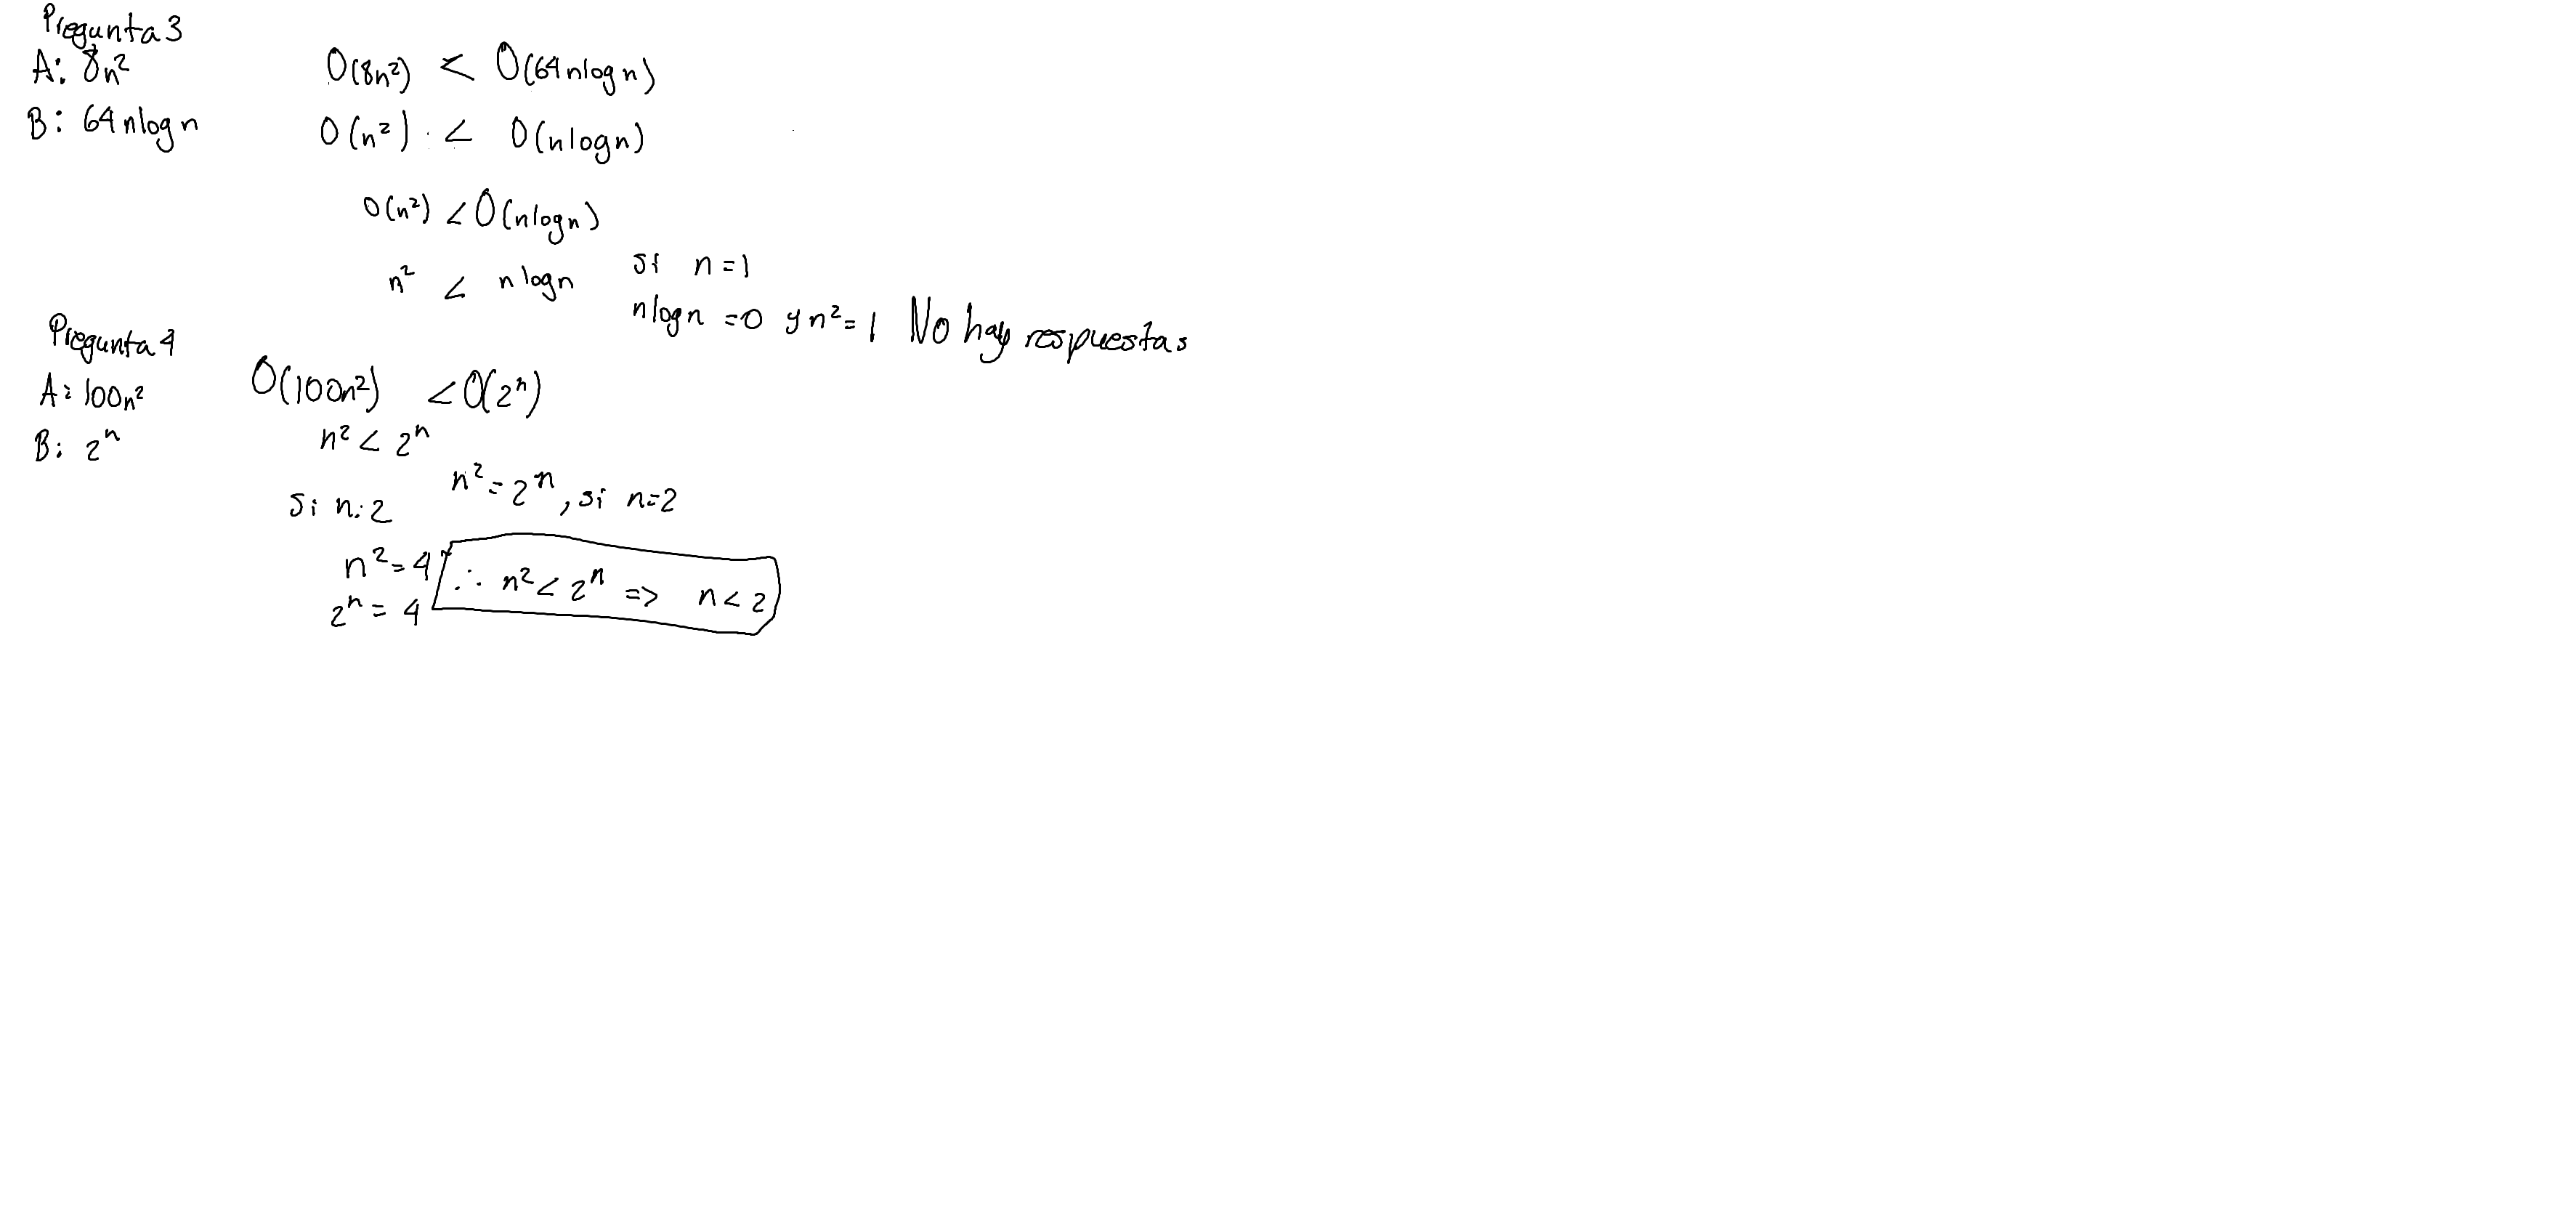 Pregunta 3
A: 8n²
B: 64nlogn
O(8n²) < O(64nlogn)
O(n²) < O(nlogn)
O(n²) < O(nlogn)
n² < nlogn
si n=1
nlogn =0 y n²=1 No hay respuestas
Pregunta 4
A: 100n²
B: 2ⁿ
O(100n²) < O(2ⁿ)
n² < 2ⁿ
n² = 2ⁿ, si n=2
Si n: 2
n² = 4
2ⁿ = 4
∴ n² < 2ⁿ => n < 2